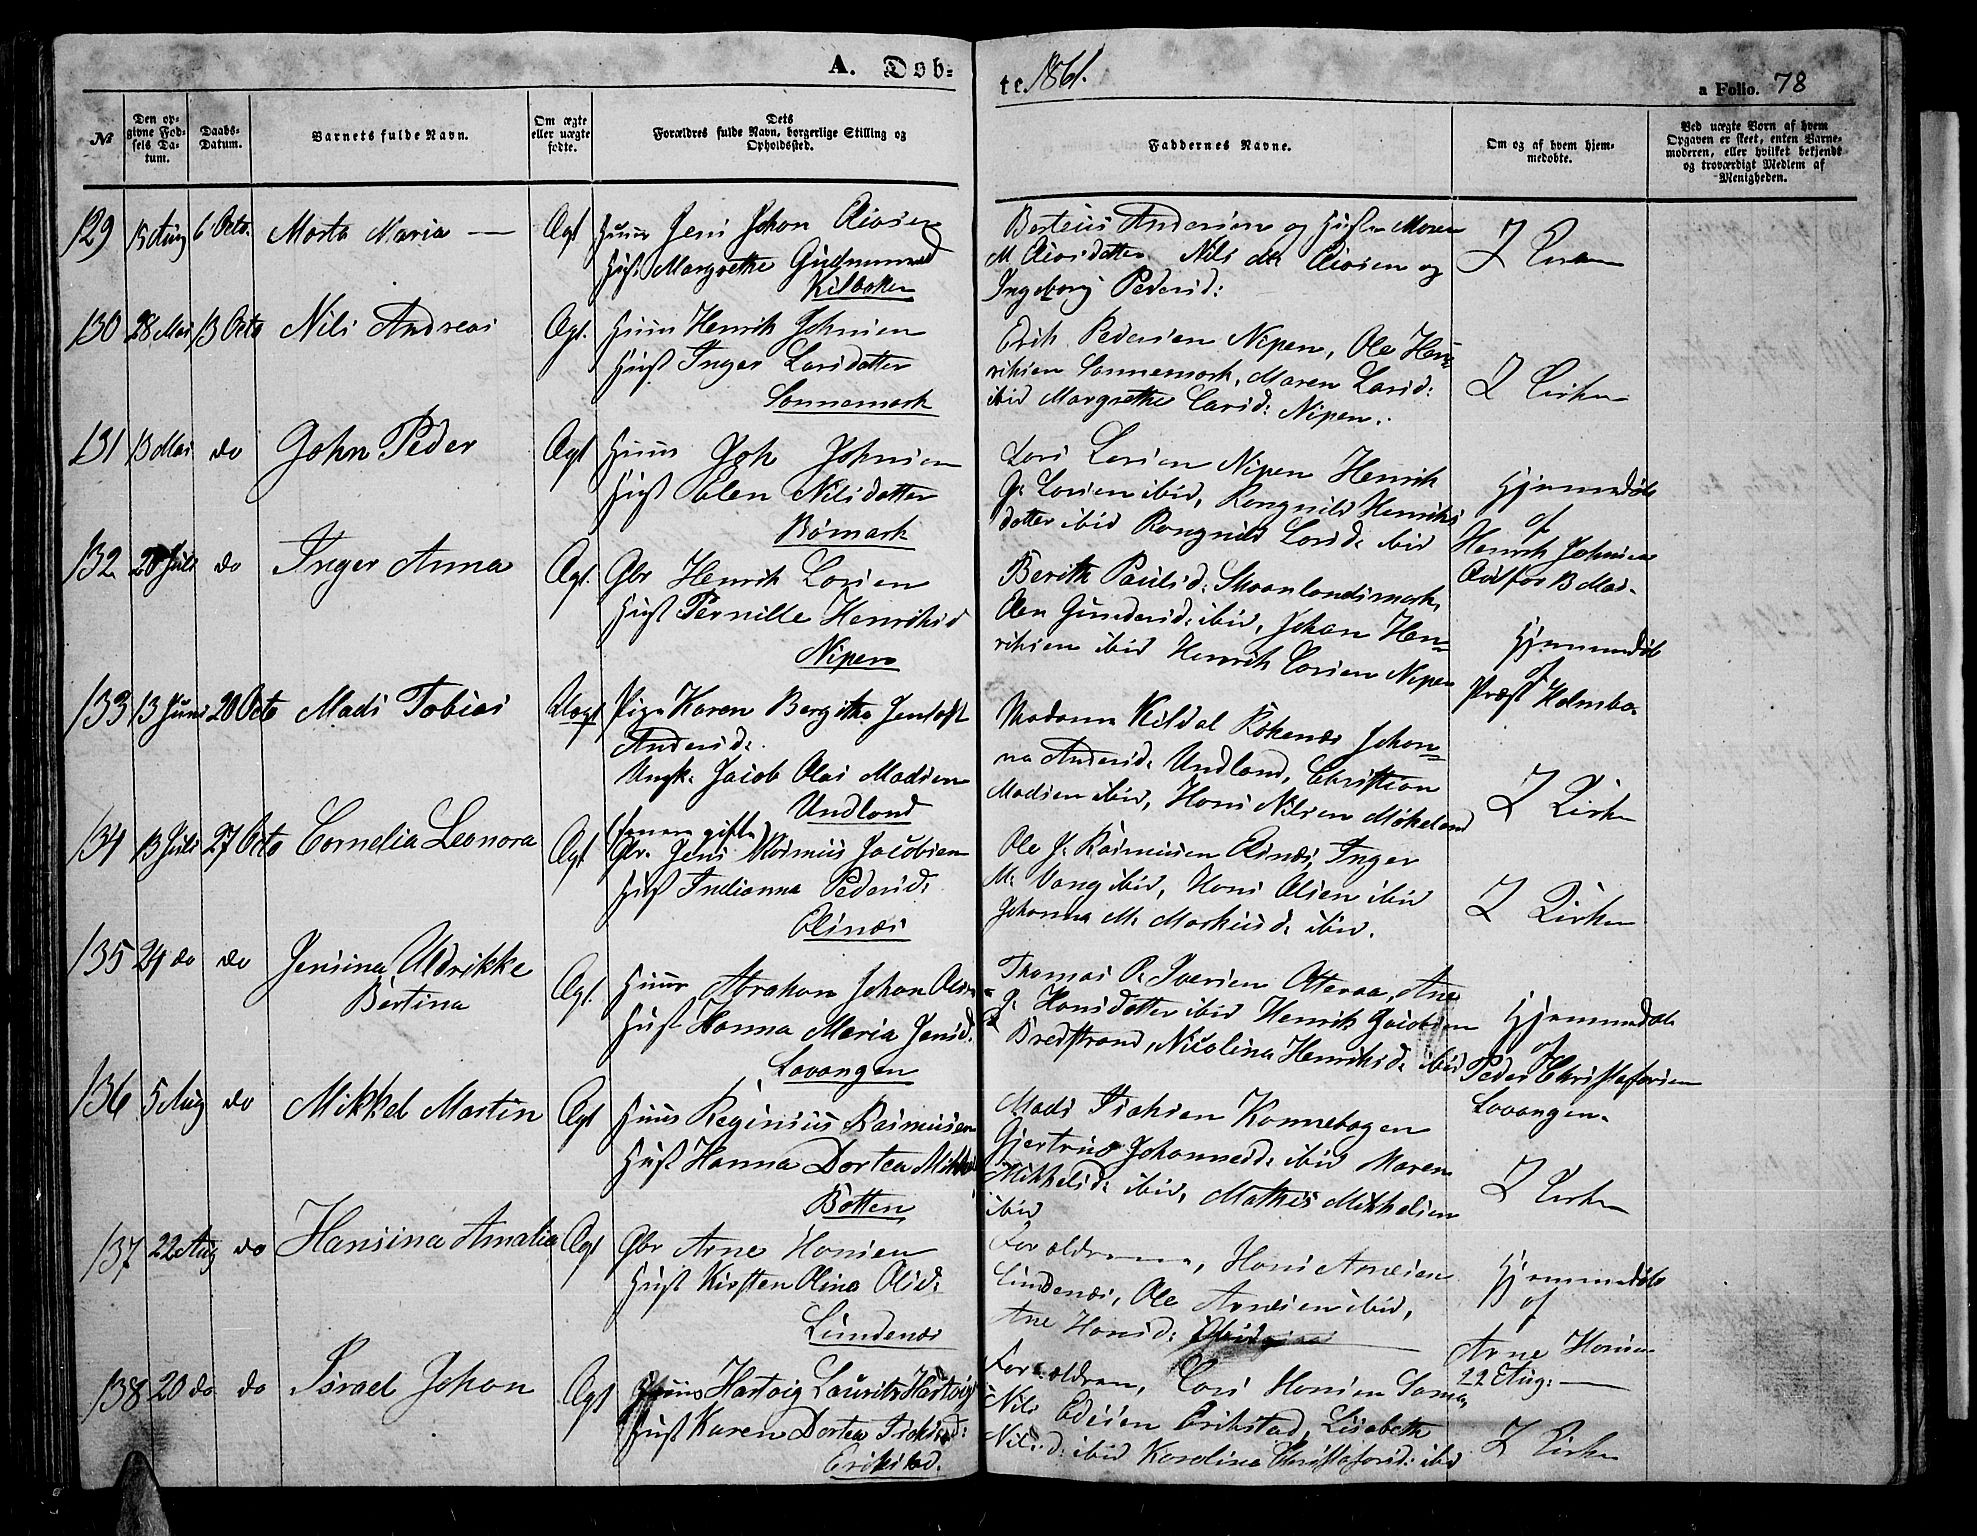 A. Døb=
te 1861.
a Folio. 78
№
Den op=
givne Fød=
sels Da=
tum.
Daabs=
Datum.
Barnets fulde Navn.
Om ægte
eller uægte
fødte.
Dets
Forældres fulde Navn, borgerlige Stilling og
Opholdssted.
Faddernes Navne.
Om og af hvem hjem=
medøbte.
Ved uægte Børn af hvem
Opgaven er skeet, enten Barne=
moderen, eller hvilket bekjendt
og troværdigt Medlem af
Menigheden.
129 15 Aug 6 Octo. Marta Maria — Ægt Huus Jens Johan
Hust Margrethe
Kilbotten
Berteus Andersen og Hust Maren
M. Nils og
Ingeborg Pedersd:
I Kirken
130 28 Mai 13 Octo Nils Andreas Ægt. Huus Henrik Johnsen
Hust Inger Larsdatter
Sonnemark
Erik Pedersen Nipen, Ole Hen=
riksen Sannemark, Maren Larsd:
ibid Margrethe Larsd: Nipen.
I Kirken
131 13 Mai do John Peder Ægt Huus Joh Johnsen
Hust Elen Nilsdatter
Bømark
Lars Larsen Nipen Henrik
J. Larsen ibid, Rangnild Henriks
datter ibid Rangnild Larsd. ibid
Hjemmedøbt
af
Henrik Johnsen
13 Mai.
132 20 Juli do Inger Anna Ægt. Gbr Henrik Larsen
Hust Pernille Henriksd
Nipen
Berith Paulsd. Skaanlandsmark,
Elen Gundersd. ibid, Johan Hen=
riksen ibid Henrik Larsen Nipen
Hjemmedøbt
af
Præst Holmbo.
133 13 Juni 20 Octo Mads Tobias Uægt Pige Karen Bergitha Jentoft
Andersd.
Ungk. Jacob Olai Madsen
Undland
Madame Kildal Røkenes Johan=
na Andersd. Undland, Christian
Madsen ibid, Hans Nilsen Møkeland
I Kirken
134 13 Juli 27 Octo Cornelia Leonora Ægt (senere gifte)
Gbr. Jens Rasmus Jacobsen
Hust Indianna Pedersd.
Elsnæs
Ole J. Rasmussen Inger
M. Vang ibid, Hans Olsen ibid
Johanna M. Markusd. ibid.
I Kirken
135 24 do do Jensina Uldrikke
Bertina
Ægt. Huus Abraham Johan Olsen
Hust Hanna Maria Jensd.
Lavangen
Thomas P. Iversen Otteraa, Ane
J. Hansdatter ibid Henrik Jacobsen
Bredstrand, Nicolina Henriksd. ibid
Hjemmedøbt
af
Peder Christofersen
Lavangen.
136 5 Aug do Mikkel Martin Ægt Huus Reginius Rasmussen
Hust Hanna Dortea Mikkelsd
Botten
Mads Isaksen Kannebogen
Gjertrud Johannesd. ibid Maren
Mikkelsd. ibid, Mathis Mikkelsen
ibid
I Kirken
137 22 Aug do Hansina Amalia Ægt Gbr Arne Hansen
Hust Kirsten Olina Olsd.
Lundenæs
Forældrene, Hans Arnesen
Lundenæs, Ole Arnesen ibid,
Ane Hansd.
Hjemmedøbt
af
Arne Hansen
22 Aug: —
138 20 do do Israel Johan Ægt Huus Hartvig Laurits Hartvigs
Hust Karen Dortea Isaksd:
Erikstad.
Forældrene, Lars Hansen Sama,
Nils Edisen Erikstad, Lisabeth
Nilsd. ibid Karolina Christofersd. ibid
I Kirken